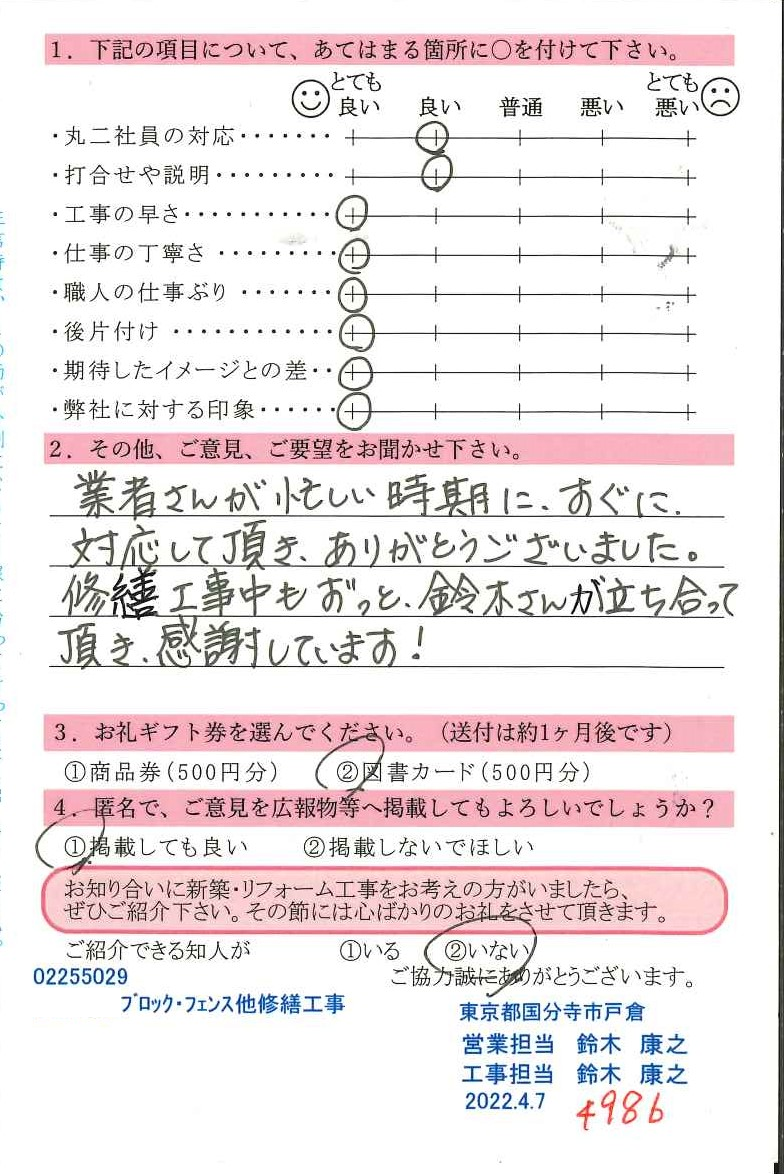 1. 下記の項目について、あてはまる箇所に○を付けて下さい。
とても良い 良い 普通 悪い とても悪い
・丸二社員の対応・・・・・・・
・打合せや説明・・・・・・・・・
・工事の早さ・・・・・・・・・・・
・仕事の丁寧さ・・・・・・・・・
・職人の仕事ぶり・・・・・・・
・後片付け・・・・・・・・・・・・
・期待したイメージとの差・・
・弊社に対する印象・・・・・・
2. その他、ご意見、ご要望をお聞かせ下さい。
業者さんが忙しい時期に、すぐに
対応して頂き、ありがとうございました。
修繕工事中もずっと、鈴木さんが立ち合って
頂き、感謝しています!
3. お礼ギフト券を選んでください。(送付は約1ヶ月後です)
①商品券(500円分) ②図書カード(500円分)
4. 匿名で、ご意見を広報物等へ掲載してもよろしいでしょうか?
①掲載しても良い ②掲載しないでほしい
お知り合いに新築・リフォーム工事をお考えの方がいましたら、
ぜひご紹介下さい。その節には心ばかりのお礼をさせて頂きます。
ご紹介できる知人が ①いる ②いない
ご協力誠にありがとうございます。
02255029
ブロック・フェンス他修繕工事
東京都国分寺市戸倉
営業担当 鈴木 康之
工事担当 鈴木 康之
2022.4.7
4986